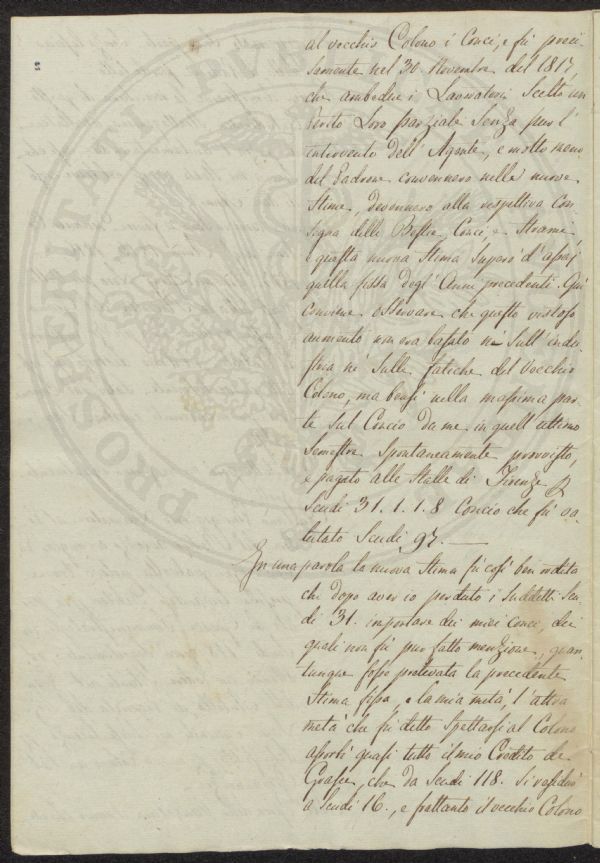 al vecchio Colono i Conci, e fù preci
samente nel 30. Novembre del 1817,
che ambedue i Lavoratori scelto un
Perito Loro parziale senza pur l'
intervento dell'Agente, e molto meno
del Padrone convennero nelle nuove
Stime, devennero alla respettiva Con
segna delle Bestie, Conci, e Strami,
e questa nuova Stima superò d'assai
quella fissa degl'Anni precedenti. Qui
conviene osservare che questo vistoso
aumento non era basato nè sull'indu
stria nè sulle fatiche del Vecchio
Colono, ma bensì nella massima par
te sul Concio da me in quell'ultimo
Semestre spontaneamente provvisto,
e pagato alle Stalle di Firenze p
Scudi 31. 1. 1. 8 Concio che fù va
lutato Scudi 97. —
In una parola la nuova Stima fù così ben ordita
che dopo aver io perduto i suddetti Scu
di 31. importare dei miei Conci, dei
quali non fù pur fatto menzione, quan
tunque fosse prelevata la precedente
Stima fissa, e la mia metà, l'altra
metà che fù detto spettarsi al Colono
assorbì quasi tutto il mio Credito de
Grasce, che da Scudi 118. si ridusse
a Scudi 16., e frattanto il vecchio Colono
PROSPERITATI PUBLI